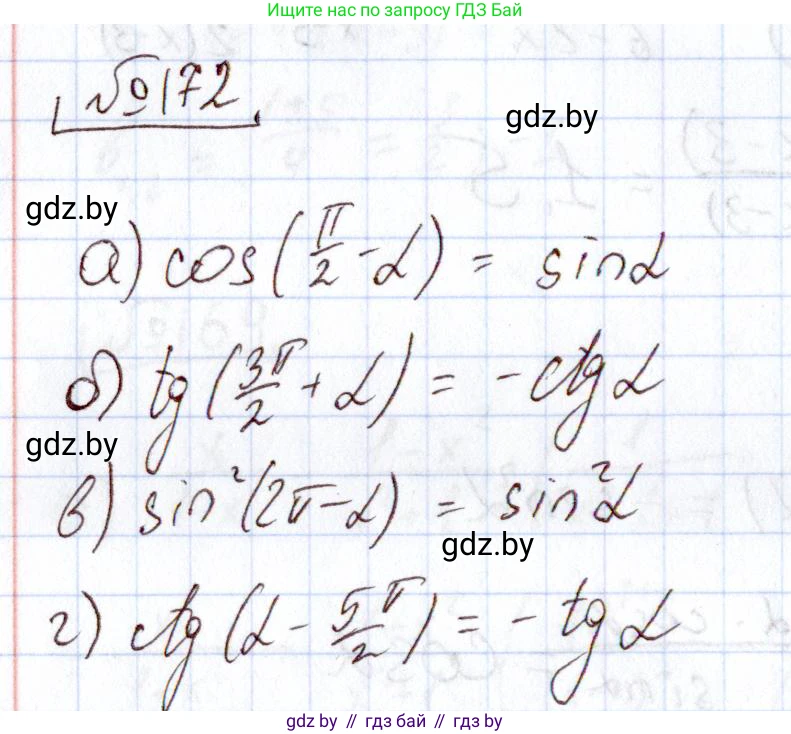 Ищите нас по запросу ГДЗ Бай
№172
gdz.by
gdz.by
а) cos(π/2 - α) = sinα
б) tg(3π/2 + α) = -ctgα
gdz.by
в) sin²(2π-α) = sin²α
gdz.by
г) ctg(α - 5π/2) = -tgα
gdz.by // гдз бай // гдз by